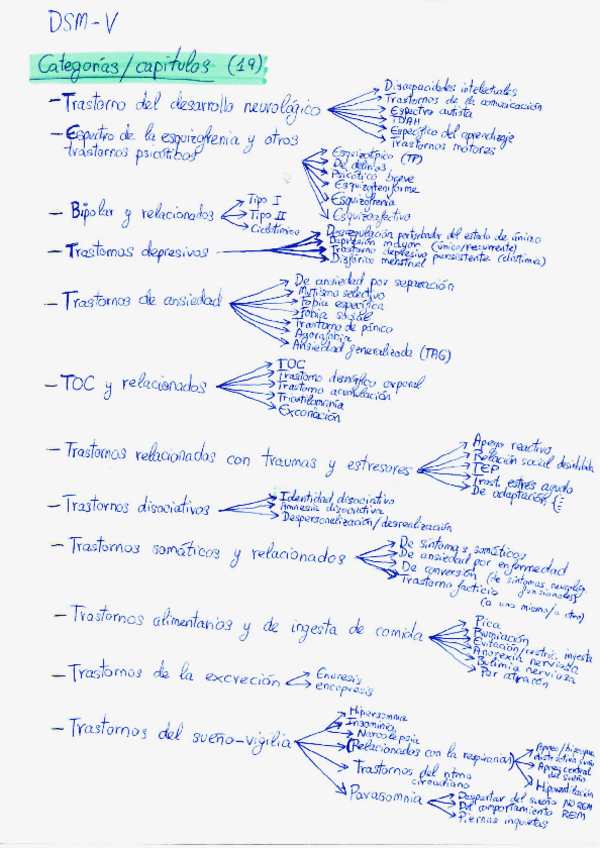 DSM-V
Categorías/capítulos (19)
- Trastorno del desarrollo neurológico
Discapacidades intelectuales
Trastornos de la comunicación
Espectro autista
TDAH
Específico del aprendizaje
Trastornos motores
- Espectro de la esquizofrenia y otros
trastornos psicóticos
Esquizotípico (TP)
De delirios
Psicótico breve
Esquizofreniforme
Esquizofrenia
Esquizoafectivo
- Bipolar y relacionados
Tipo I
Tipo II
Ciclotímico
- Trastornos depresivos
Desregulación perturbador del estado de ánimo
Depresión mayor (único/recurrente)
Trastorno depresivo persistente (distimia)
Disfórico menstrual
- Trastornos de ansiedad
De ansiedad por separación
Mutismo selectivo
Fobia específica
Fobia social
Trastorno de pánico
Agorafobia
Ansiedad generalizada (TAG)
- TOC y relacionados
TOC
Trastorno dismórfico corporal
Trastorno acumulación
Tricotilomanía
Excoriación
- Trastornos relacionados con traumas y estresores
Apego reactivo
Relación social desinhibida
TEP
Trast. estrés agudo
De adaptación
- Trastornos disociativos
Identidad disociativo
Amnesia disociativa
Despersonalización/desrealización
- Trastornos somáticos y relacionados
De síntomas somáticos
De ansiedad por enfermedad
De conversión (de síntomas neurológ.
funcionales)
Trastorno facticio
(a uno mismo/a otro)
- Trastornos alimentarios y de ingesta de comida
Pica
Rumiación
Evitación/restric. ingesta
Anorexia nerviosa
Bulimia nerviosa
Por atracón
- Trastornos de la excreción
Enuresis
encopresis
- Trastornos del sueño-vigilia
Hipersomnia
Insomnio
Narcolepsia
(Relacionados con la respiración)
Apnea/hipopnea
obstructiva sueño
Apnea central
del sueño
Hipoventilación
Trastornos del ritmo
circadiano
Parasomnia
Despertar del sueño NO REM
Del comportamiento REM
Piernas inquietas